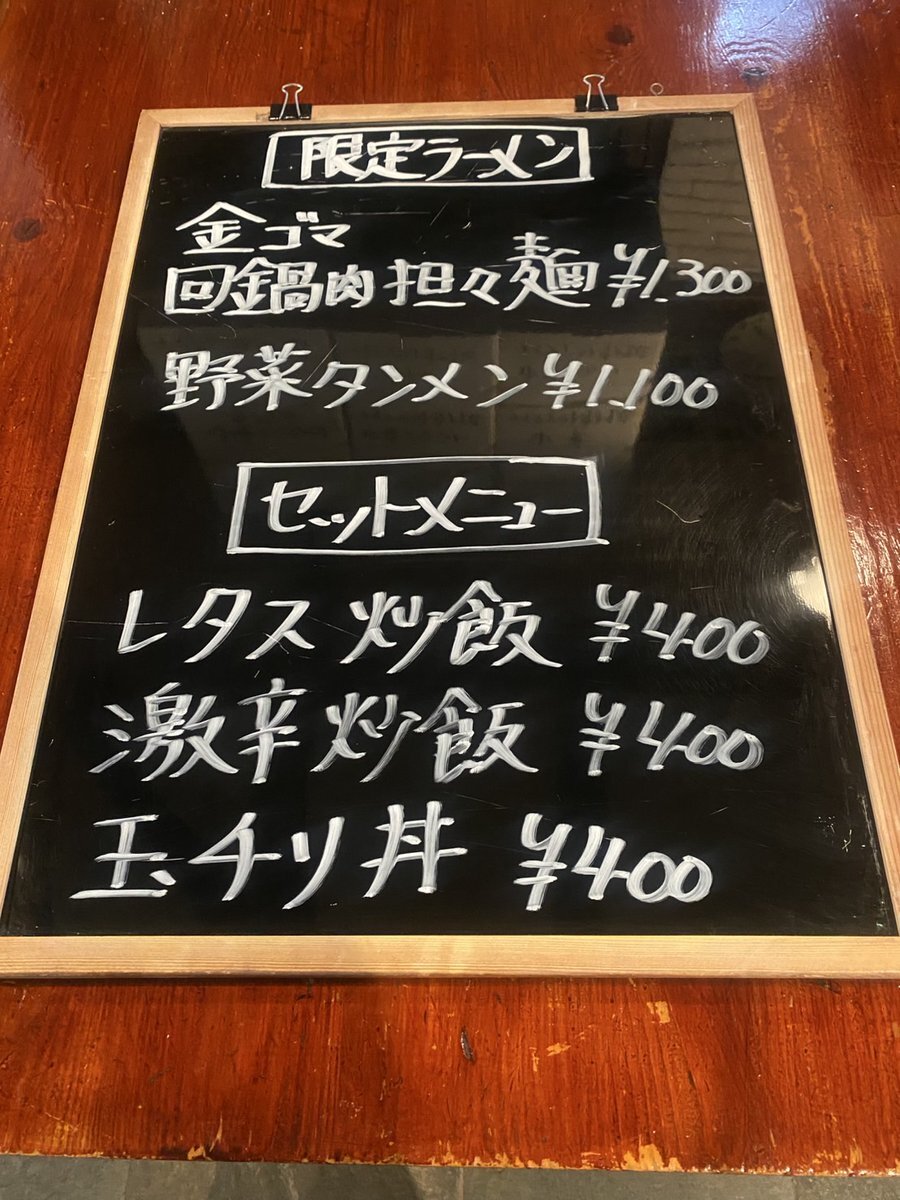 限定ラーメン
金ゴマ
回鍋肉担々麺 ¥1.300
野菜タンメン ¥1.100
セットメニュー
レタス炒飯 ¥400
激辛炒飯 ¥400
玉チリ丼 ¥400